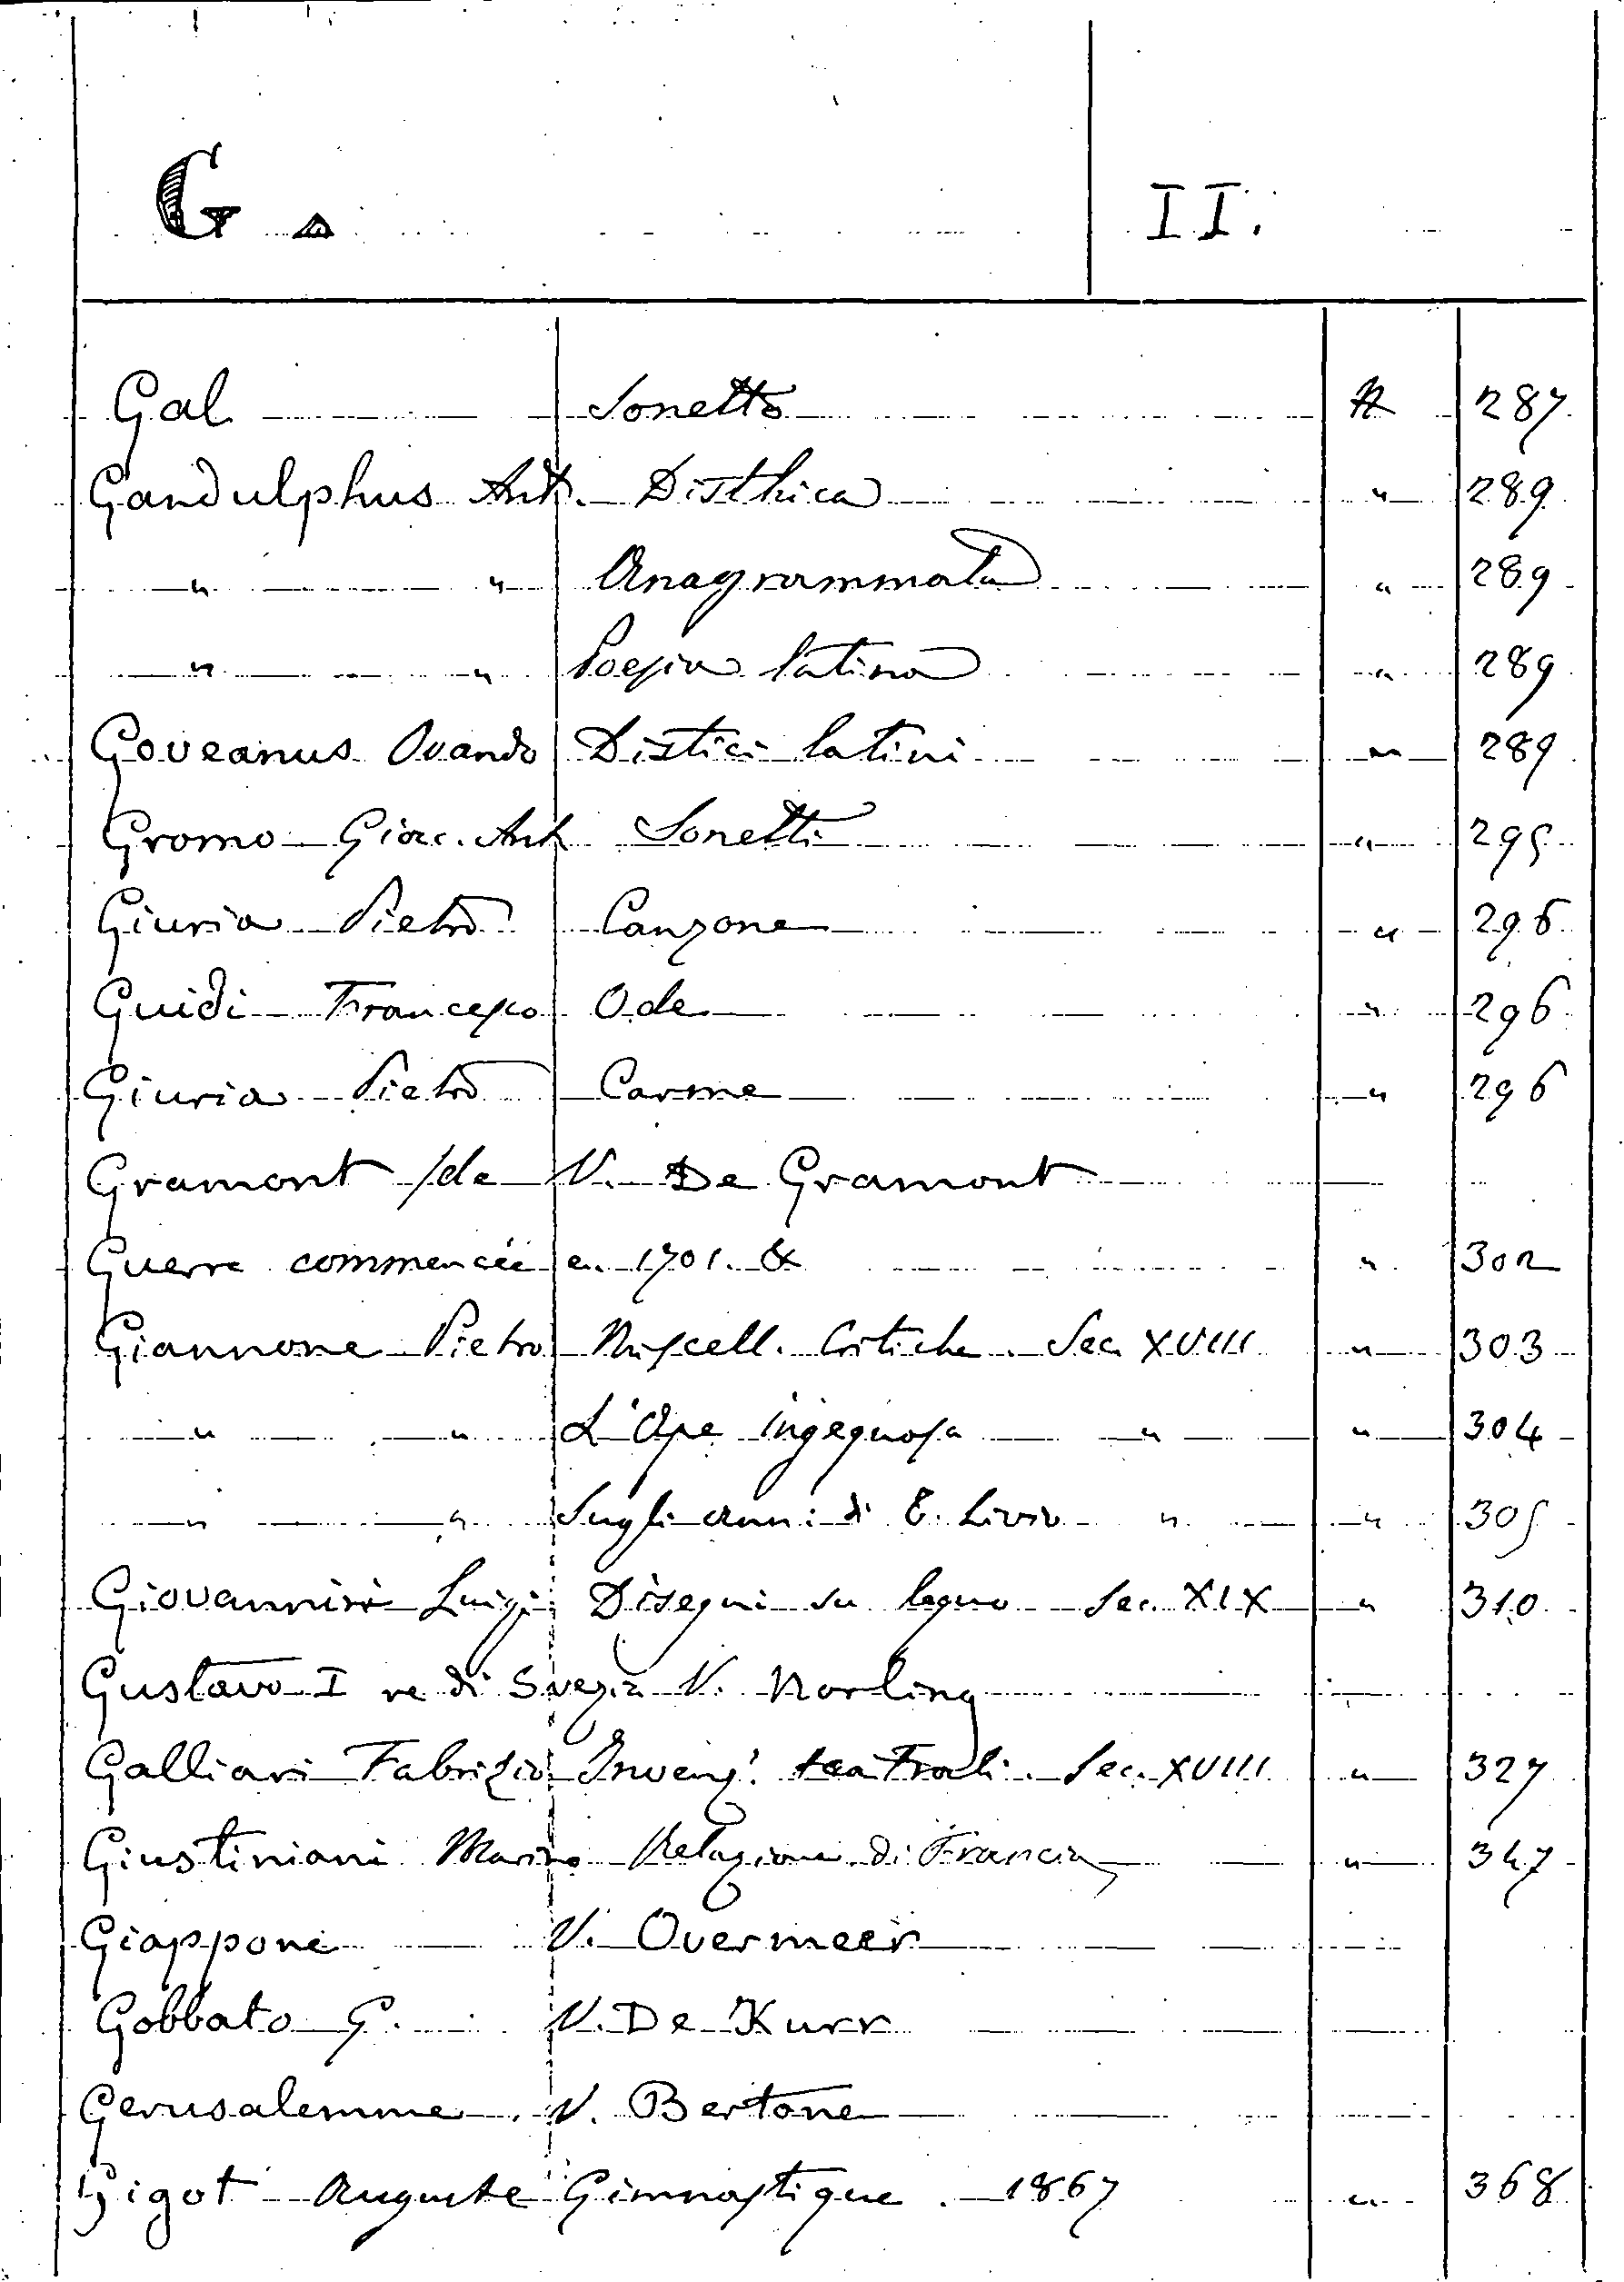 G. II.
Gal Sonetto 287
Gandulphus Ant. Disthica " 289
" " Anagrammata " 289
" " Poesia latina " 289
Goveanus Ovando Distici latini " 289
Gromo Giac. Ant. Sonetti " 295
Giuria Pietro Canzone " 296
Guidi Francesco Ode " 296
Giuria Pietro Carme " 296
Gramont /de V. De Gramont
Guerre commencée en 1701. & " 302
Giannone Pietro Miscell. Critiche. Sec. XVIII " 303
" " L'Ape ingegnosa " " 304
" " Sugli ann: di T. Livio " " 305
Giovannini Luigi Disegni su legno Sec. XIX " 310
Gustavo I re di Svezia V. Norling
Galliari Fabrizio Invenz: teatrali. Sec. XVIII " 327
Giustiniani Marino Relazione di Francia " 347
Giappone V. Overmeer
Gobbato G. V. De Kurr
Gerusalemme V. Bertone
Gigot Auguste Gimnastique. 1867 " 368